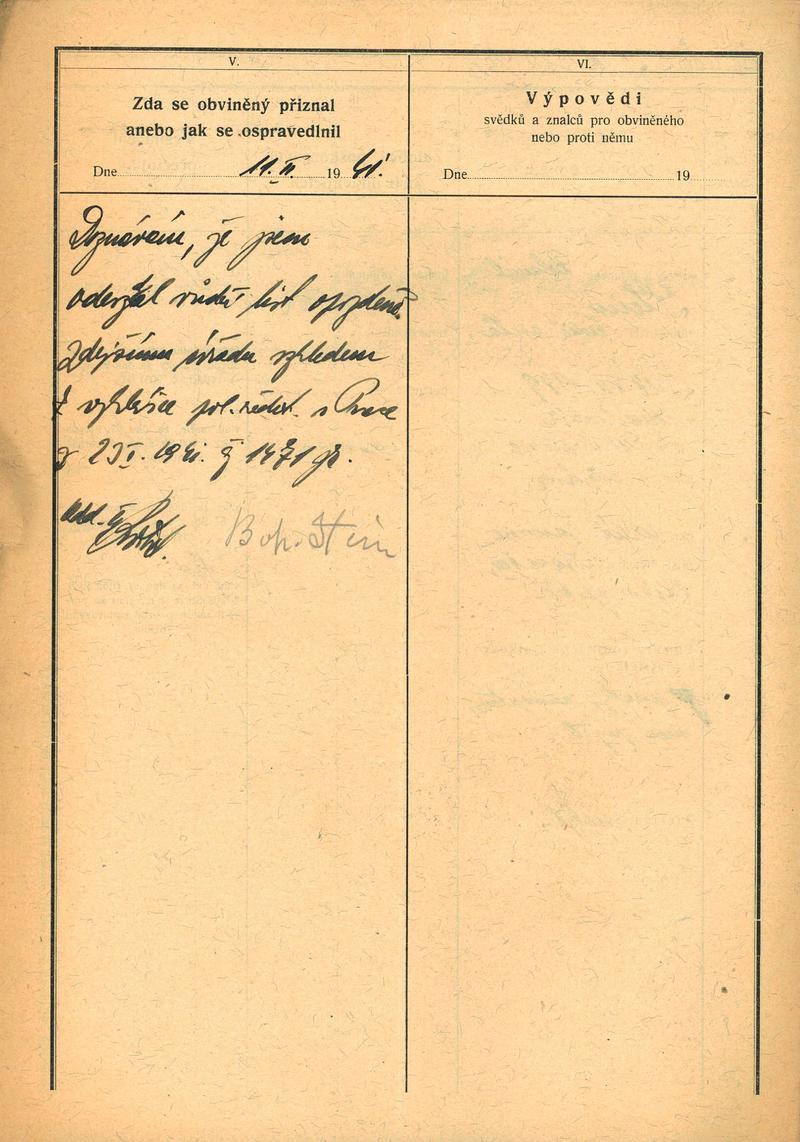 V.
Zda se obviněný přiznal
anebo jak se ospravedlnil
Dne 11. II. 19 41.
VI.
Výpovědi
svědků a znalců pro obviněného
nebo proti němu
Dne 19
Doznávám, že jsem
odevzdal vůdčí list opozdeně
zdejšímu úřadu vzhledem
k vyhlášce pol. ředit. v Praze
z 23 I. 1941. č 1471 
Boh. Stein